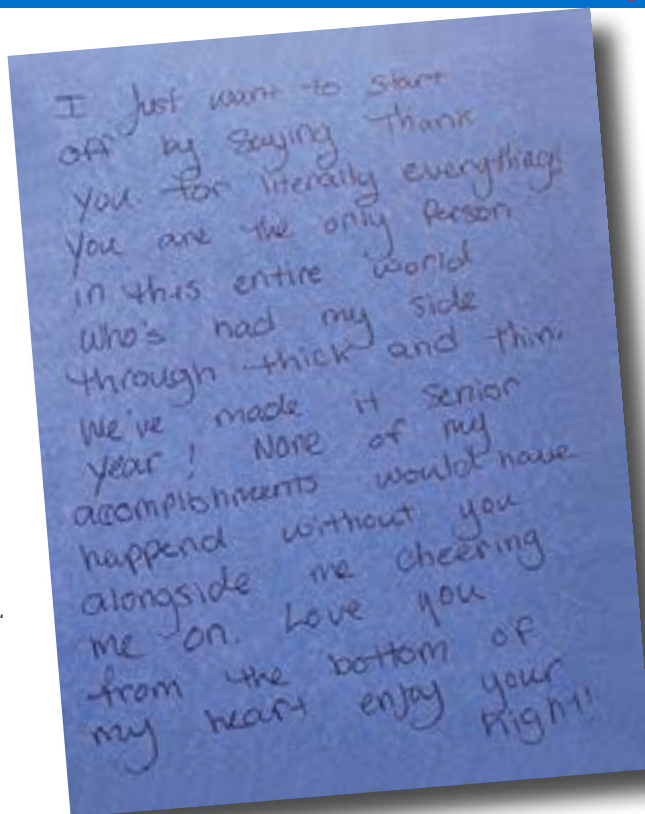 I Just want to start
off by Saying Thank
you for literally everything!
You are the only Person
in this entire world
who's had my side
through thick and thin.
We've made it senior
year! None of my
accomplishments would have
happend without you
alongside me cheering
me on. Love you
from the bottom of
my heart enjoy your
night!